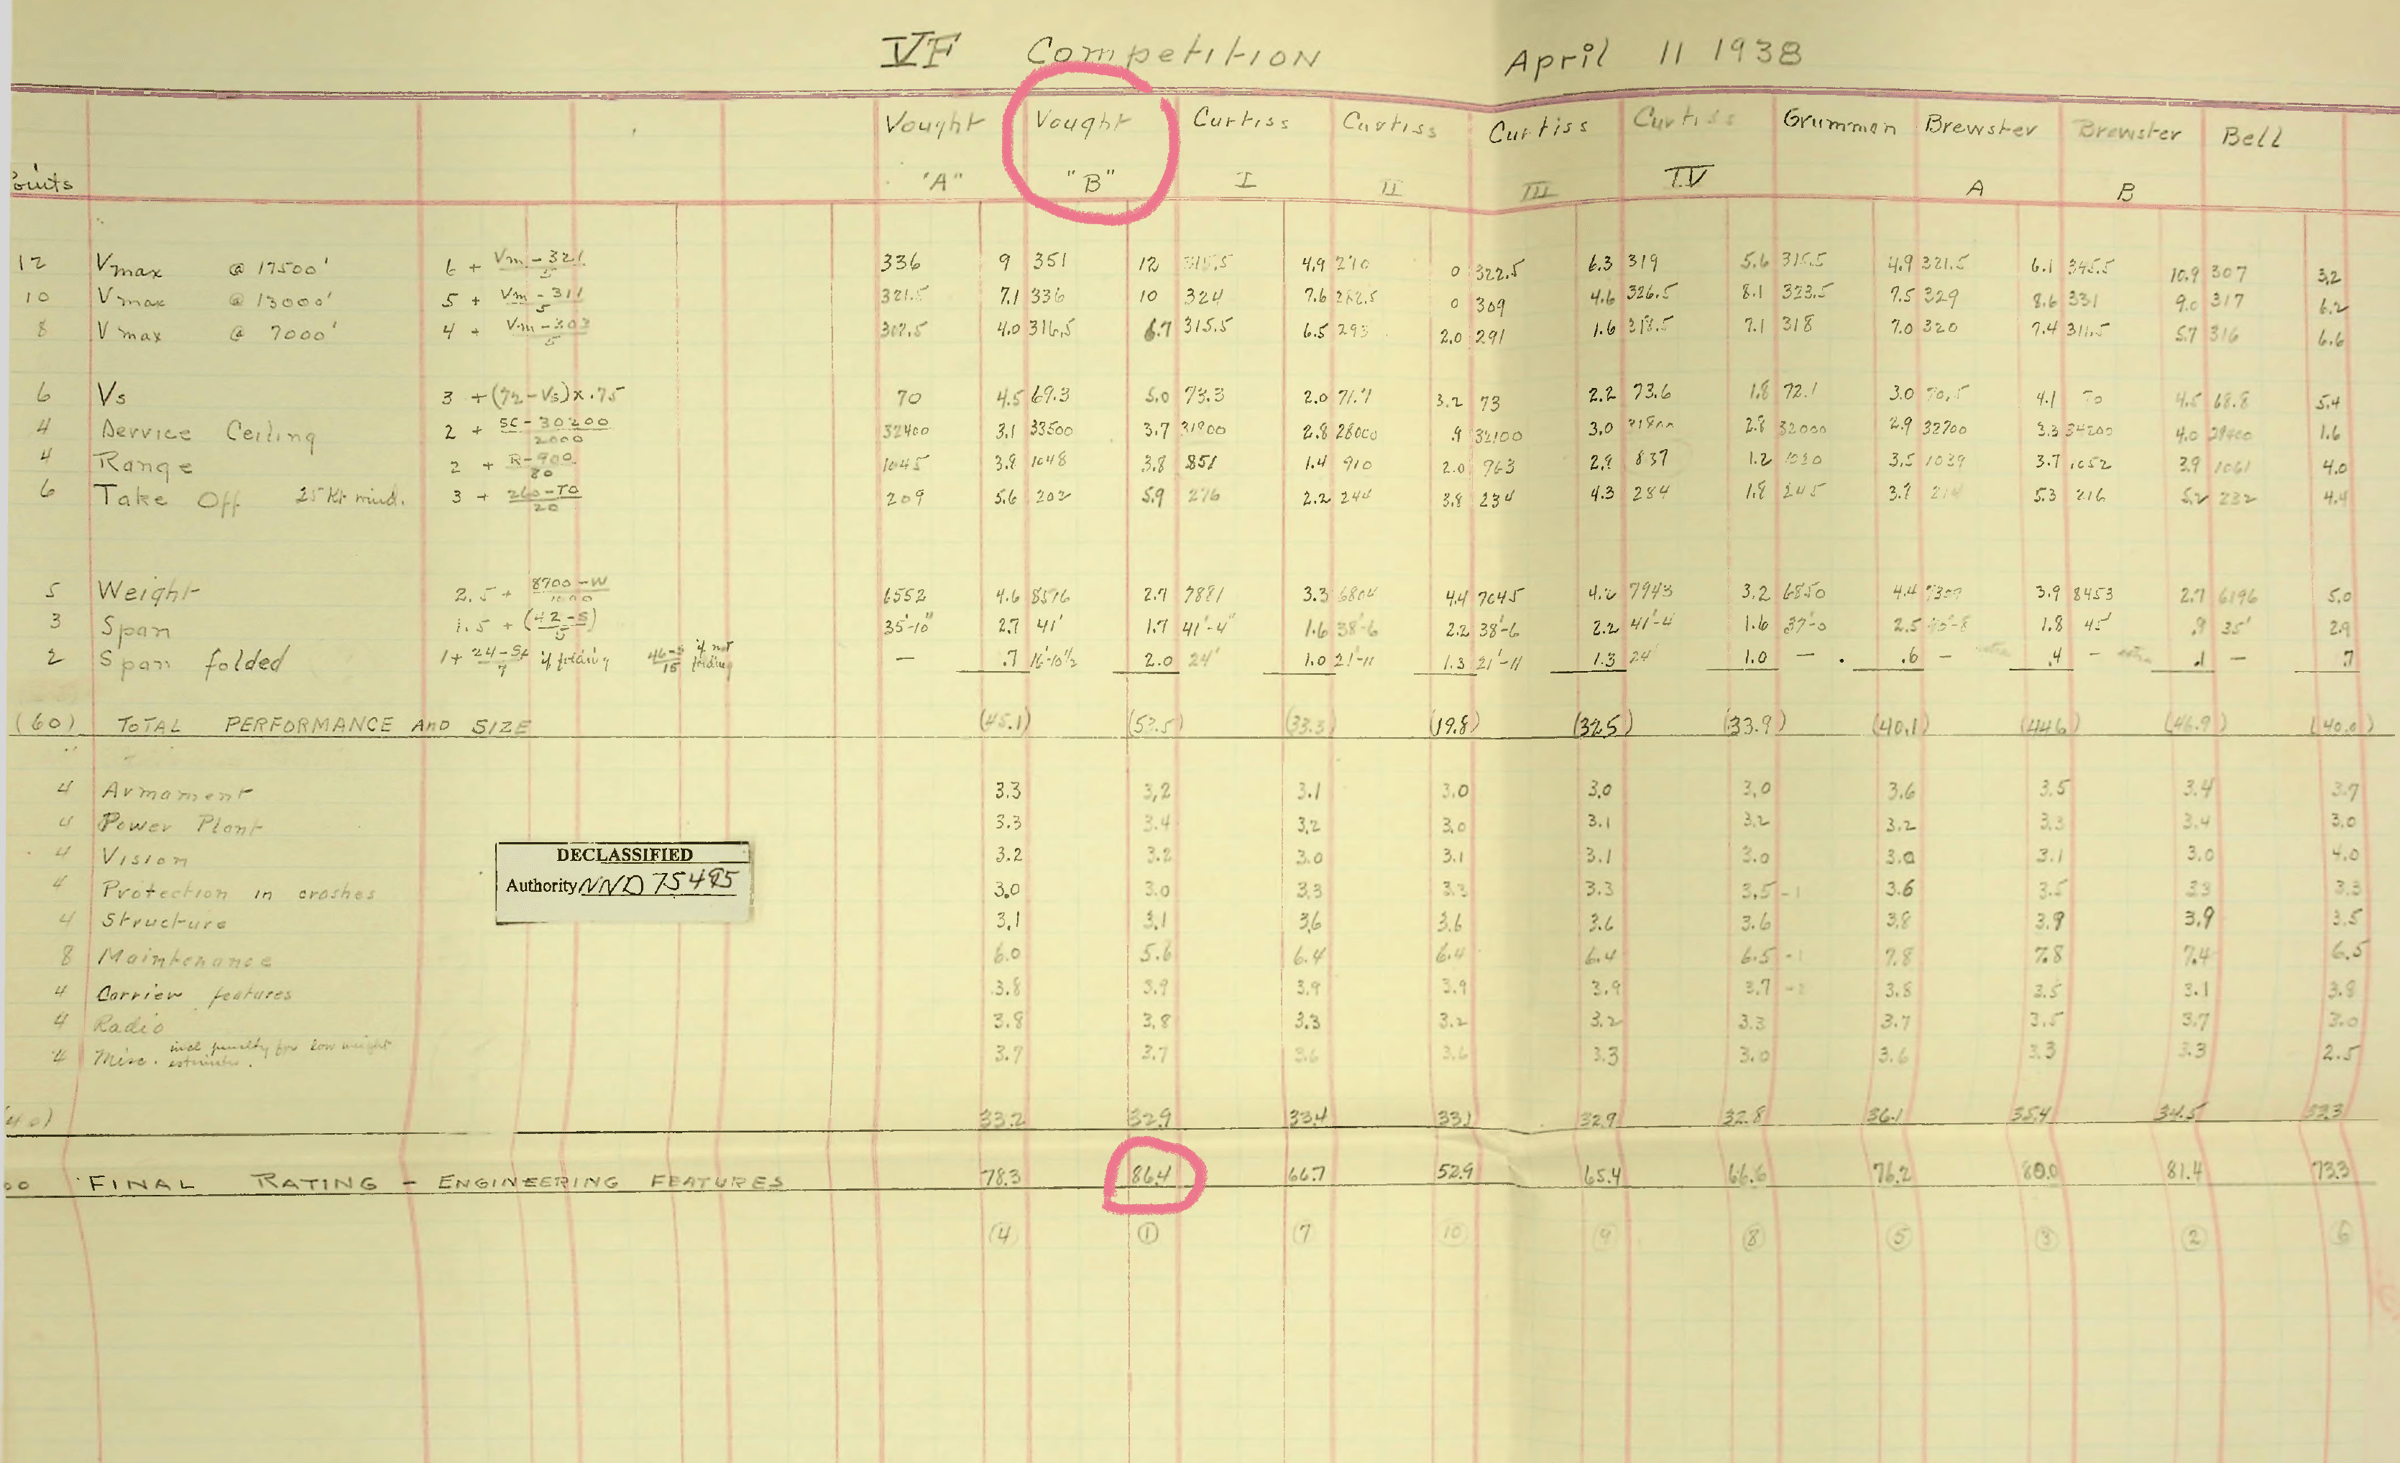 VF Competition April 11 1938
Vought Vought Curtiss Curtiss Curtiss Curtiss Grumman Brewster Brewster Bell
Points "A" "B" I II III IV A B
12 Vmax @ 17500' 6 + Vm-321/5 336 9 351 12 315.5 4.9 270 0 322.5 6.3 319 5.6 315.5 4.9 321.5 6.1 345.5 10.9 307 3.2
10 Vmax @ 13000' 5 + Vm-311/5 321.5 7.1 336 10 324 7.6 282.5 0 309 4.6 326.5 8.1 323.5 7.5 329 8.6 331 9.0 317 6.2
8 Vmax @ 7000' 4 + Vm-303/5 302.5 4.0 316.5 6.7 315.5 6.5 293 2.0 291 1.6 318.5 7.1 318 7.0 320 7.4 311.5 5.7 316 6.6
6 Vs 3 + (72-Vs)x.75 70 4.5 69.3 5.0 73.3 2.0 71.7 3.2 73 2.2 73.6 1.8 72.1 3.0 70.5 4.1 70 4.5 68.8 5.4
4 Service Ceiling 2 + SC-30200/2000 32400 3.1 33500 3.7 31900 2.8 28000 .9 32100 3.0 31800 2.8 32000 2.9 32700 3.3 34200 4.0 29400 1.6
4 Range 2 + R-900/80 1045 3.8 1048 3.8 851 1.4 910 2.0 963 2.9 837 1.2 1020 3.5 1039 3.7 1052 3.9 1061 4.0
6 Take Off 25 Kt wind. 3 + 260-TO/20 209 5.6 202 5.9 276 2.2 244 3.8 234 4.3 284 1.8 245 3.7 214 5.3 216 5.2 232 4.4
5 Weight 2.5 + 8700-W/1000 6552 4.6 8516 2.7 7881 3.3 6804 4.4 7045 4.2 7943 3.2 6850 4.4 7300 3.9 8453 2.7 6196 5.0
3 Span 1.5 + (42-S/5) 35'-10" 2.7 41' 1.7 41'-4" 1.6 38'-6 2.2 38'-6 2.2 41'-4 1.6 37'-0 2.5 40'-8 1.8 45' .9 35' 2.9
2 Span folded 1 + 24-Sf/7 if folding 46-S/15 if not folding — .7 16'-10½ 2.0 24' 1.0 21'-11 1.3 21'-11 1.3 24' 1.0 — .6 — .4 — .1 — .7
(60) TOTAL PERFORMANCE AND SIZE (45.1) (53.5) (33.3) (19.8) (32.5) (33.9) (40.1) (44.6) (46.9) (40.0)
4 Armament 3.3 3.2 3.1 3.0 3.0 3.0 3.6 3.5 3.4 3.7
4 Power Plant 3.3 3.4 3.2 3.0 3.1 3.2 3.2 3.3 3.4 3.0
4 Vision 3.2 3.2 3.0 3.1 3.1 3.0 3.0 3.1 3.0 4.0
4 Protection in crashes 3.0 3.0 3.3 3.3 3.3 3.5 -1 3.6 3.5 3.3 3.3
4 Structure 3.1 3.1 3.6 3.6 3.6 3.6 3.8 3.9 3.9 3.5
8 Maintenance 6.0 5.6 6.4 6.4 6.4 6.5 -1 7.8 7.8 7.4 6.5
4 Carrier features 3.8 3.9 3.9 3.9 3.9 3.7 3.8 3.5 3.1 3.8
4 Radio 3.8 3.8 3.3 3.2 3.2 3.3 3.7 3.5 3.7 3.0
4 Misc. incl penalty for low weight estimates. 3.7 3.7 3.6 3.6 3.3 3.0 3.6 3.3 3.3 2.5
40) 33.2 32.9 33.4 33.1 32.9 32.8 36.1 35.4 34.5 33.3
00 FINAL RATING - ENGINEERING FEATURES 78.3 86.4 66.7 52.9 65.4 66.6 76.2 80.0 81.4 73.3
④ ① ⑦ ⑩ ⑨ ⑧ ⑤ ③ ② ⑥
DECLASSIFIED
Authority NND 75495